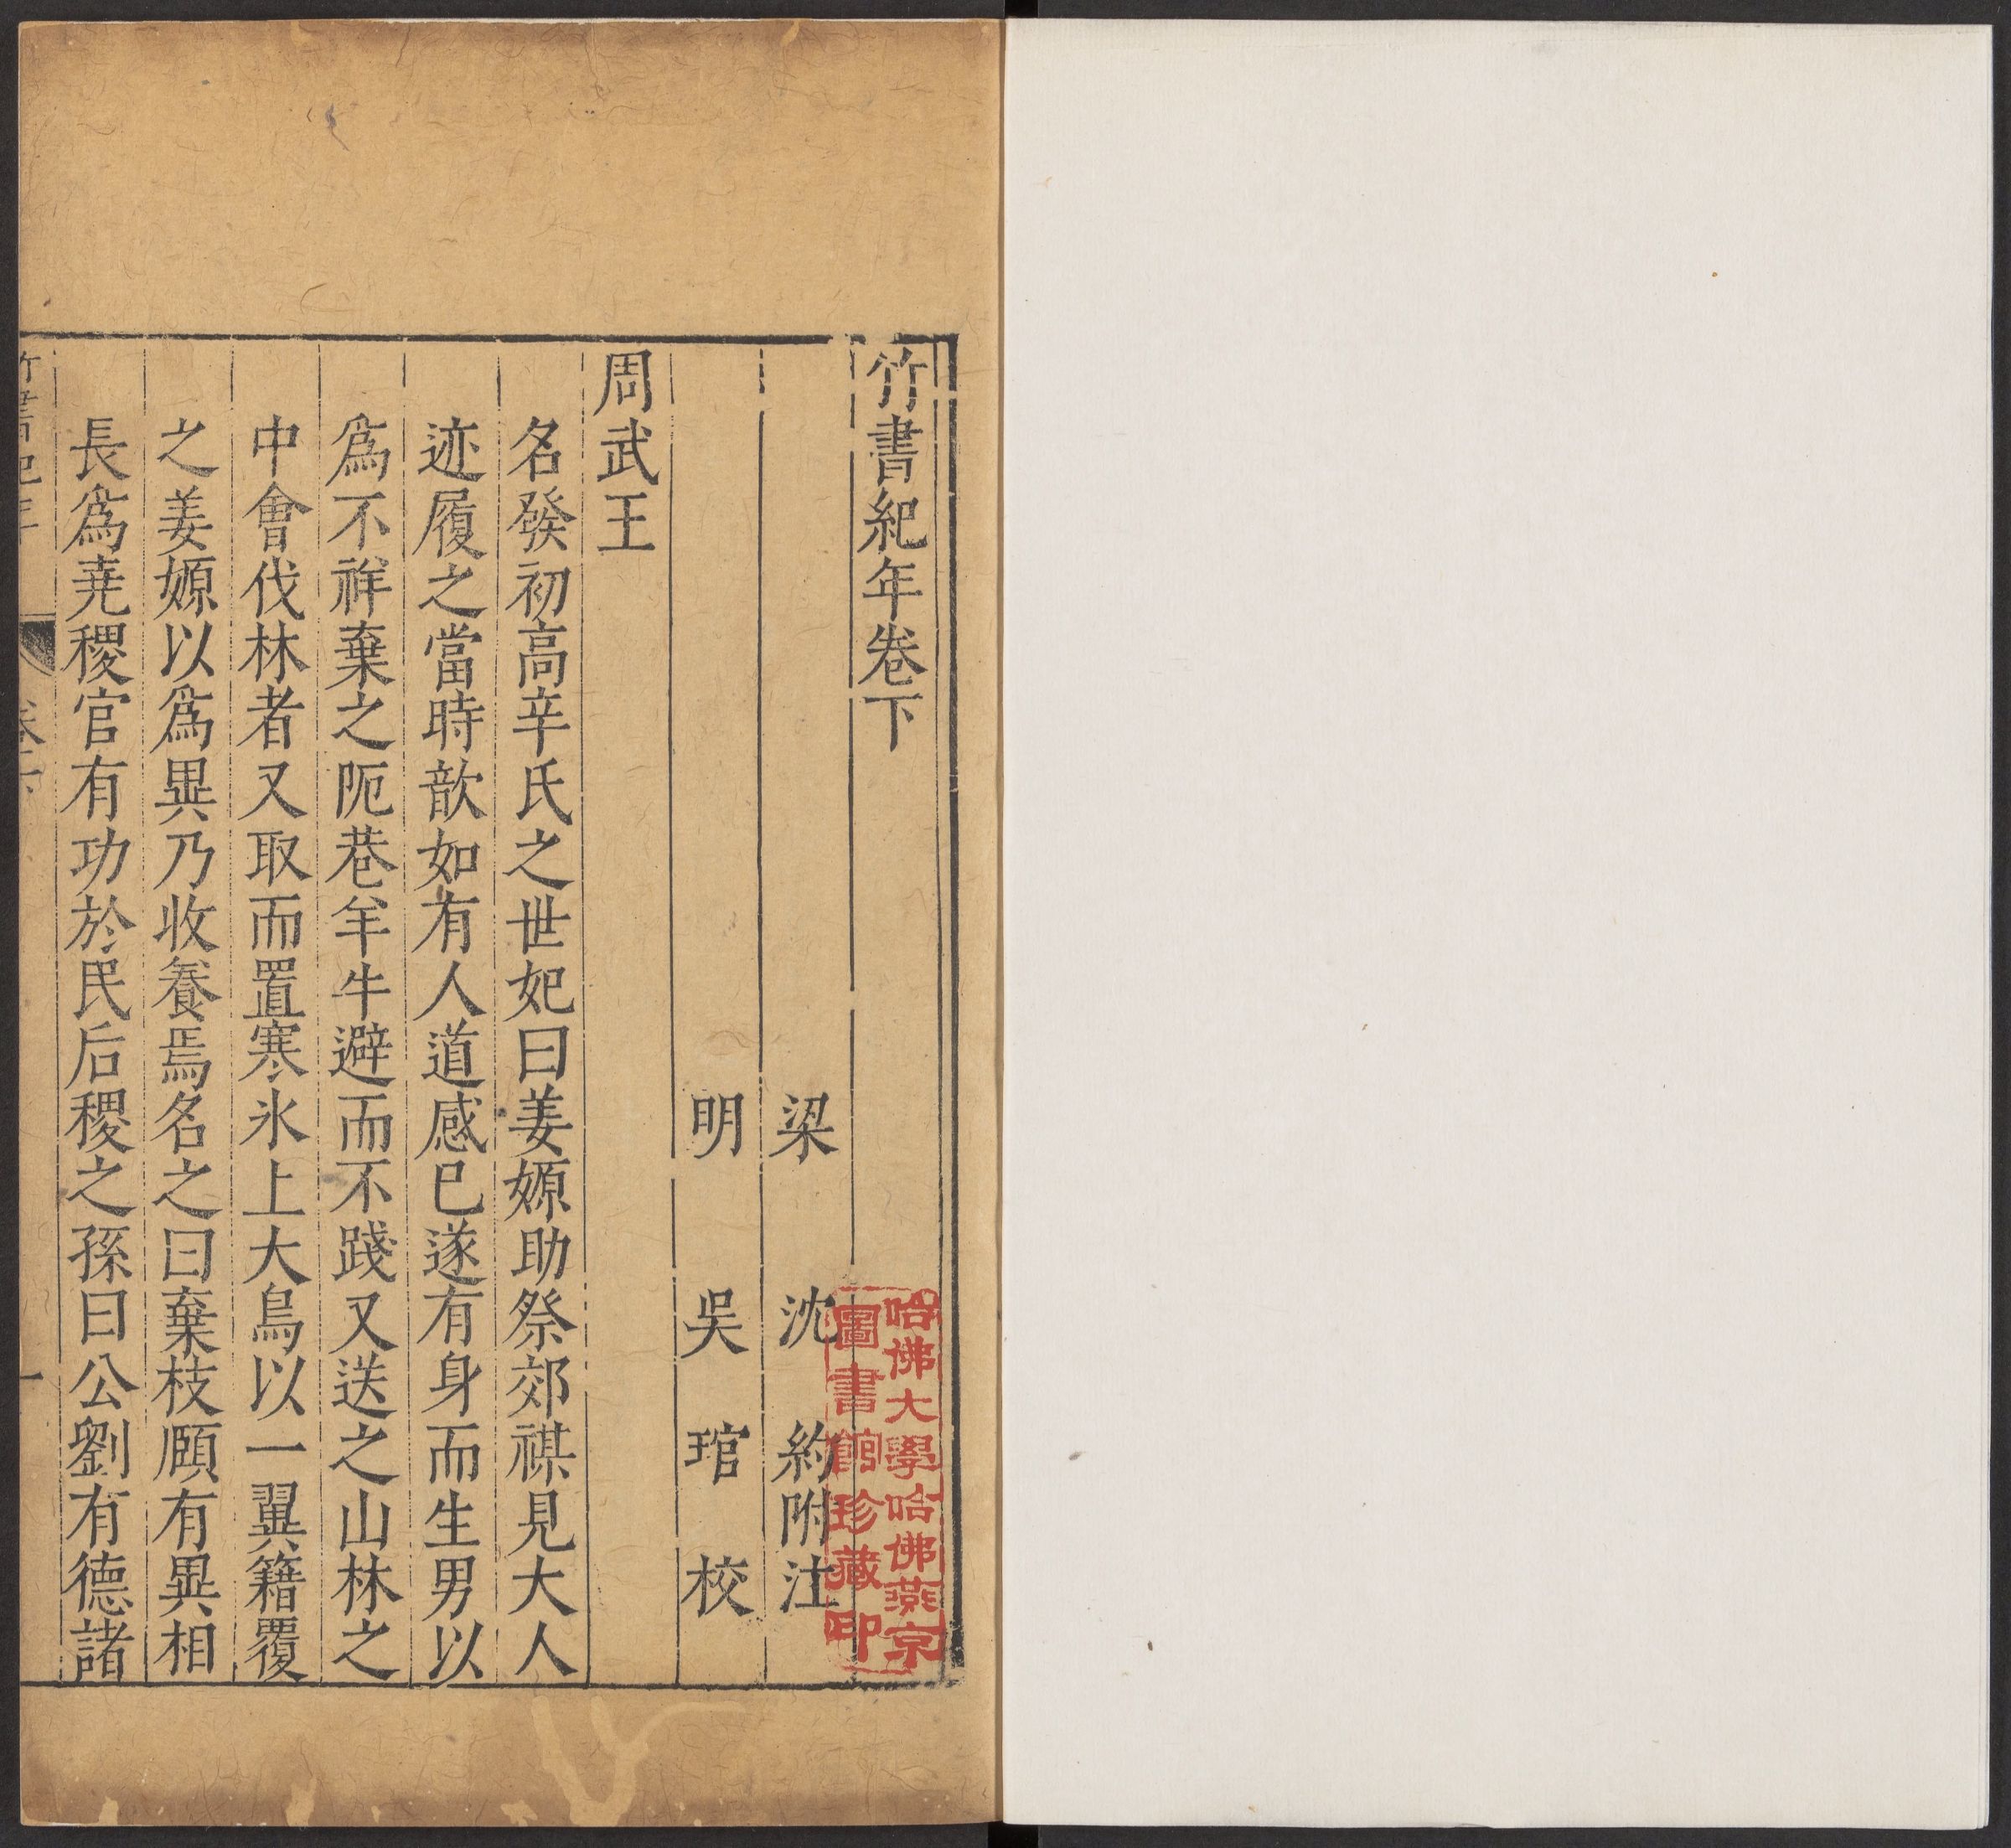 竹書紀年卷下
梁 沈 約附注
明 吳 琯 校
周武王
名發初高辛氏之世妃曰姜嫄助祭郊禖見大人
迹履之當時歆如有人道感已遂有身而生男以
爲不祥棄之阨巷羊牛避而不踐又送之山林之
中會伐林者又取而置寒氷上大鳥以一翼籍覆
之姜嫄以爲異乃收養焉名之曰棄枝頤有異相
長爲堯稷官有功於民后稷之孫曰公劉有德諸
竹書紀年 卷下 一
哈佛大學哈佛燕京
圖書館珍藏印